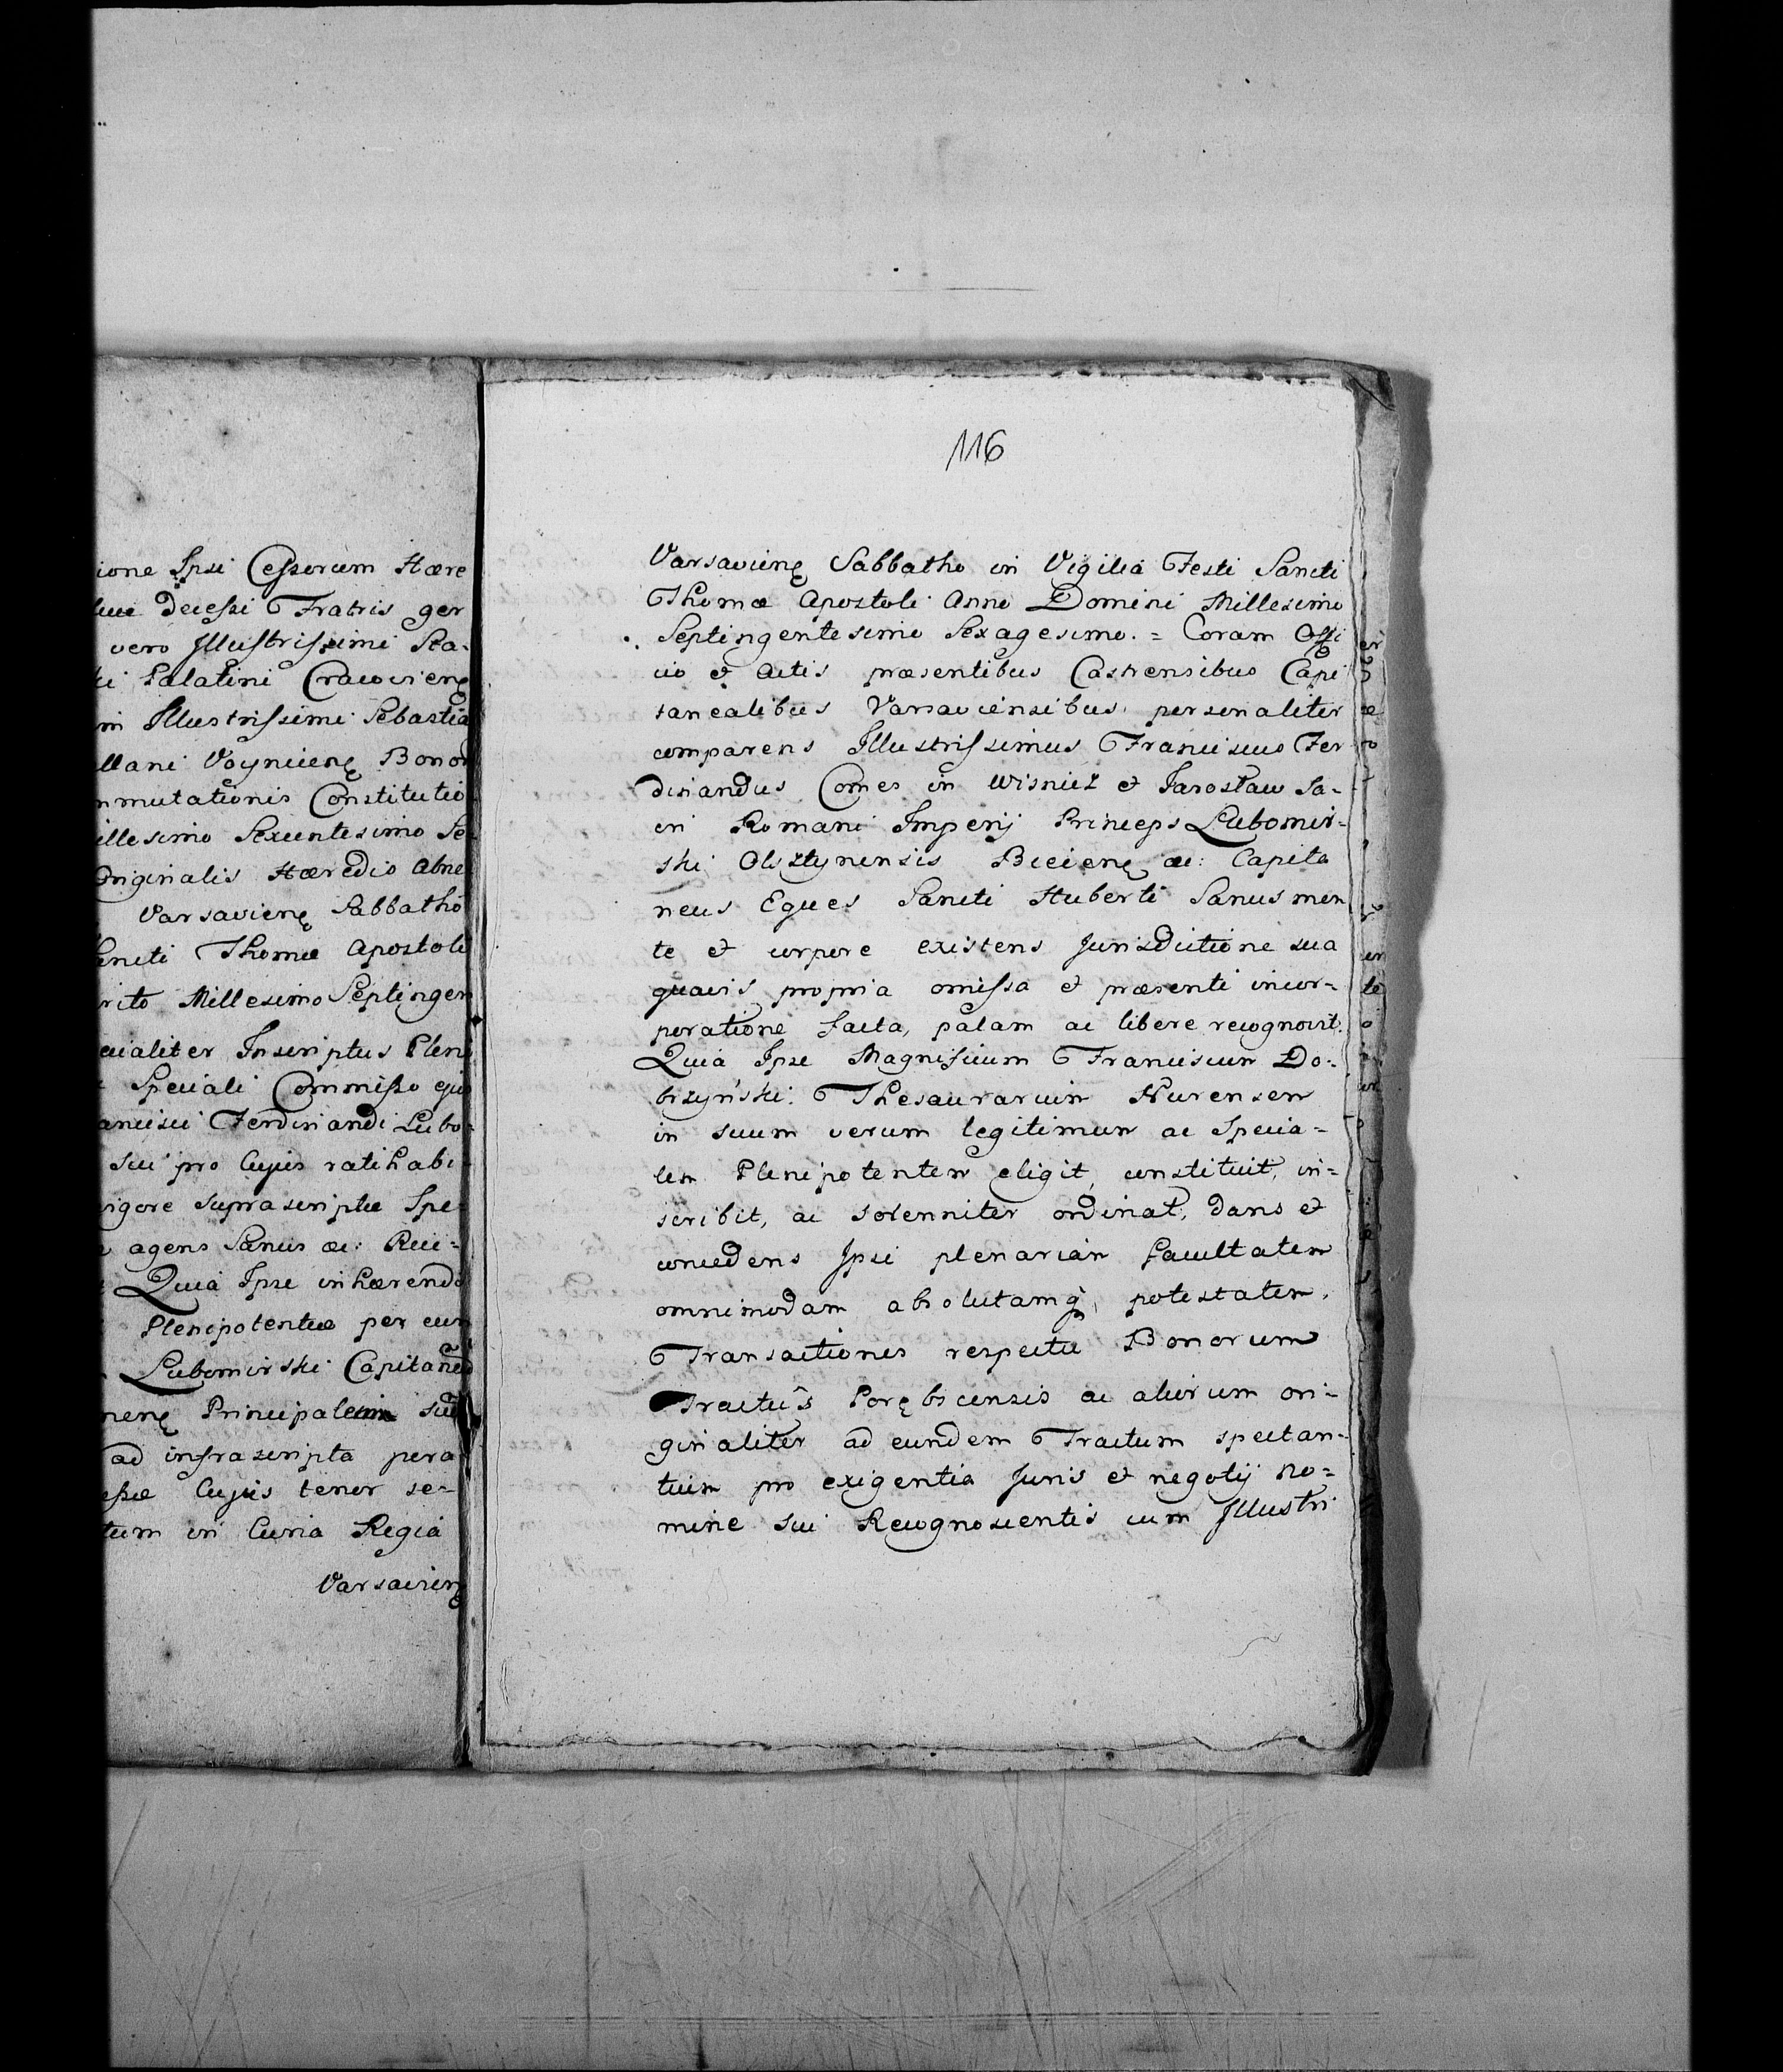 ione Ipsi Cessorum Hære
decessi Fratris ger
vero Illustrissimi Sta-
ki Palatini Cracovienẽ
m Illustrissimi Sebastia
llani Voynicienẽ Bonor
mmutationis Constitutio
illesimo Sexcentesimo Se
Originalis Hæredis abne
Varsavienẽ Sabbatho
ancti Thomæ Apostoli
Millesimo Septingen
cialiter Inscriptus Pleni
Speciali Commisso ejus
ancisci Ferdinandi Lubo-
sui pro cujus ratihabi-
vigore suprascriptæ Spe-
agens Sanus &c: Rec-
Quia Ipse inhærendo
Plenipotentiæ per eum
Lubomirski Capitaneũ
nenẽ Principalem suũ
ad infrascripta pera
essæ Cujus tenor se-
tum in Curia Regia
Varsavienẽ
116
Varsavienẽ Sabbatho in Vigilia Festi Sancti
Thomæ Apostoli Anno Domini Millesimo
Septingentesimo Sexagesimo. = Coram Offi
cio et Actis præsentibus Castrensibus Capi
tanealibus Varsaviensibus personaliter
comparens Illustrissimus Franciscus Fer
dinandus Comes in Wisnicz et Jarosław Sa-
cri Romani Imperij Princeps Lubomir-
ski Olsztynensis Biecienẽ &c: Capita
neus Eques Sancti Huberti Sanus men
te et corpore existens Jurisdictione sua
quavis propria omissa et præsenti incor-
poratione facta, palam ac libere recognovit.
Quia Ipse Magnificum Franciscum Do-
brzyński Thesaurarium Nurensem
in suum verum legitimum ac Specia-
lem Plenipotentem eligit, constituit, in-
scribit, ac solenniter ordinat, dans et
concedens Ipsi plenariam facultatem
omnimodam absolutamq̃, potestatem,
Transactiones respectu Bonorum
Tractûs Porębscensis ac aliorum ori-
ginaliter ad eundem Tractum spectan-
tium pro exigentia Juris et negotij no-
mine sui Recognoscentis cum Illustri